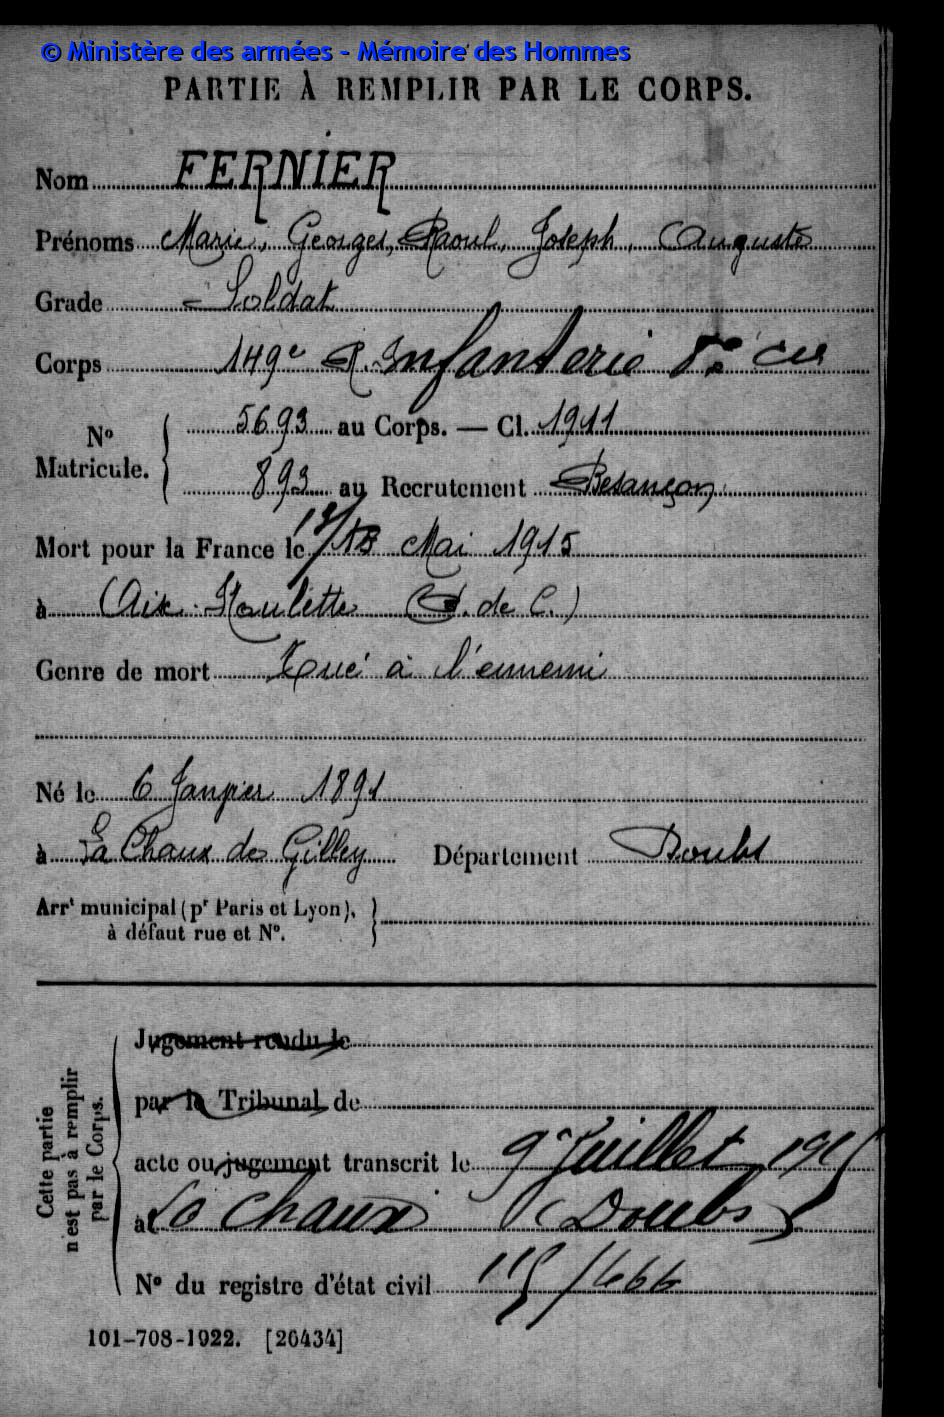 © Ministère des armées - Mémoire des Hommes
PARTIE À REMPLIR PAR LE CORPS.
Nom FERNIER
Prénoms Marie, Georges, Raoul, Joseph, Auguste
Grade Soldat
Corps 149e R. Infanterie 8e Cie
No Matricule. 5693 au Corps. — Cl. 1911
893 au Recrutement Besançon
Mort pour la France le Mai 1915
à Aix-Noulette (P. de C.)
Genre de mort Tué à l'ennemi
Né le 6 Janvier 1891
à La Chaux de Gilley Département Doubs
Arrt municipal (pr Paris et Lyon),
à défaut rue et No.
Cette partie n'est pas à remplir par le Corps.
Jugement rendu le
par le Tribunal de
acte ou jugement transcrit le 9 Juillet 1915
à La Chaux (Doubs)
No du registre d'état civil 115/466
101-708-1922. [26434]